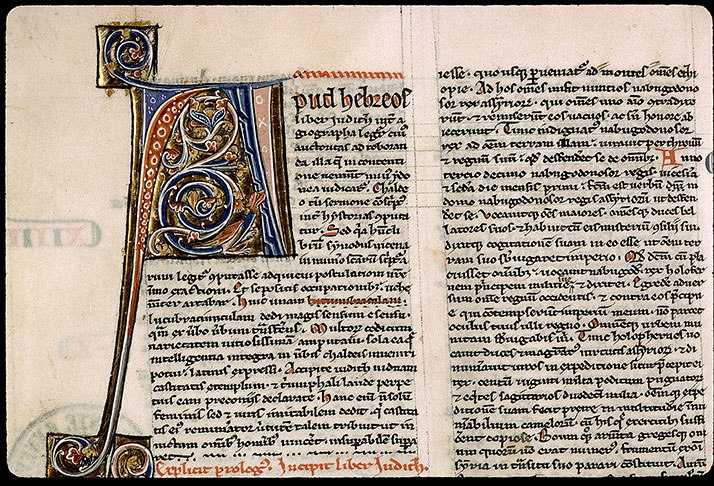 Apud hebreos
liber Judith int̉ a
giographa legit̉ cui᷒
auctoritas ad roboran
da illa q̄ in contenti
one ueniunt min᷒ ydo
nea iudicat᷒. Chalde
o tn̄ sermone cōsc̄pt᷒
int̉ hystorias oputa
tur. Sed q̄a hunc li
brū synodus nicena
in num̉o sanctarū
rum legit᷒ cputasse adquieui postulationi ur̄e
immo exactioni. Et sepositis occupationib᷒. uehe
mēter artabar. huic unam
lucubraciunculam dedi magis sensum e sensu
quā ex ūbo ūbum trāsferēs. Multor codicum
uarietatem uitiosissimam amputaui. sola ea q̄
intelligentia integra in ūbis chaldeis inueniri
potui. latinis expressi. Accipite iudith uiduam
castitatis exemplum & triumphali laude perpe
tuis eam preconiis declarate. Hanc eni non solum
feminis sed & uiris imitabilem dedit. q̄ castita
tis ei᷒ remunerator uirtutē talem tribuit ut in
uictum omīb᷒ homīb᷒ uincer&. insupabilē supa
ret.
Explicit prolog᷒. Incipit liber Judith.
iesse. quo usq; pueniat᷒ ad montes omēs ethi
opie. Ad hos omēs misit nuntios nabugodono
sor rex assyrior. qui omēs uno aīo cōtradixe
runt. & remiserūt eos uacuos ac sū honore ab
iecerunt. Tunc indignat᷒ nabugodonosor
rex ad omem terram illam. iurauit per thronū
& regnum suū. qd̄ defenderet se de omib᷒. Anno
tercio decimo nabugodonosor regis. uicesima
& secda die mensis primi. factū est uerbū in
domo nabugodonosor regis assyrior ut defen
deret se. Vocauitq; oēs maiores. omēsq; duces bel
latores suos. & habuit cū eis misteriū cōsilii sui.
dixitq; cogitationē suam in eo esse ut omēm ter
ram suo subiugaret imperio. Qd̄ dictū cū pla
cuisset omīb᷒. uocauit nabugod. rex holofer
nem principem milicie & dixit ei. Egredere aduer
sum omne regnum occidentis. & contra eos p̄cipu
e qui contempserunt imperiū meum. no parcet
oculus tuus ulli regno. Omnemq; urbem mu
nitam subiugabis m̄. Tunc holophernes uo
cauit duces & magistrat᷒ uirtutis assyrior. & di
numerauit uiros in expeditione sicut p̄cepit ei
rex. centū uiginti milia peditum pugnatorū
& eq̄tes sagittarios duodecī milia. omemq; expe
ditionē suam fecit preire in multitudine innu
merabilium camelorū. cū his q̄ exercitib᷒ suffi
cerent copiose. Boum q̄ armenta. gregesq; oui
um quorū nō erat numer᷒. frumentū ex om̄
syria in transitu suo parari cōstituit. Aurū